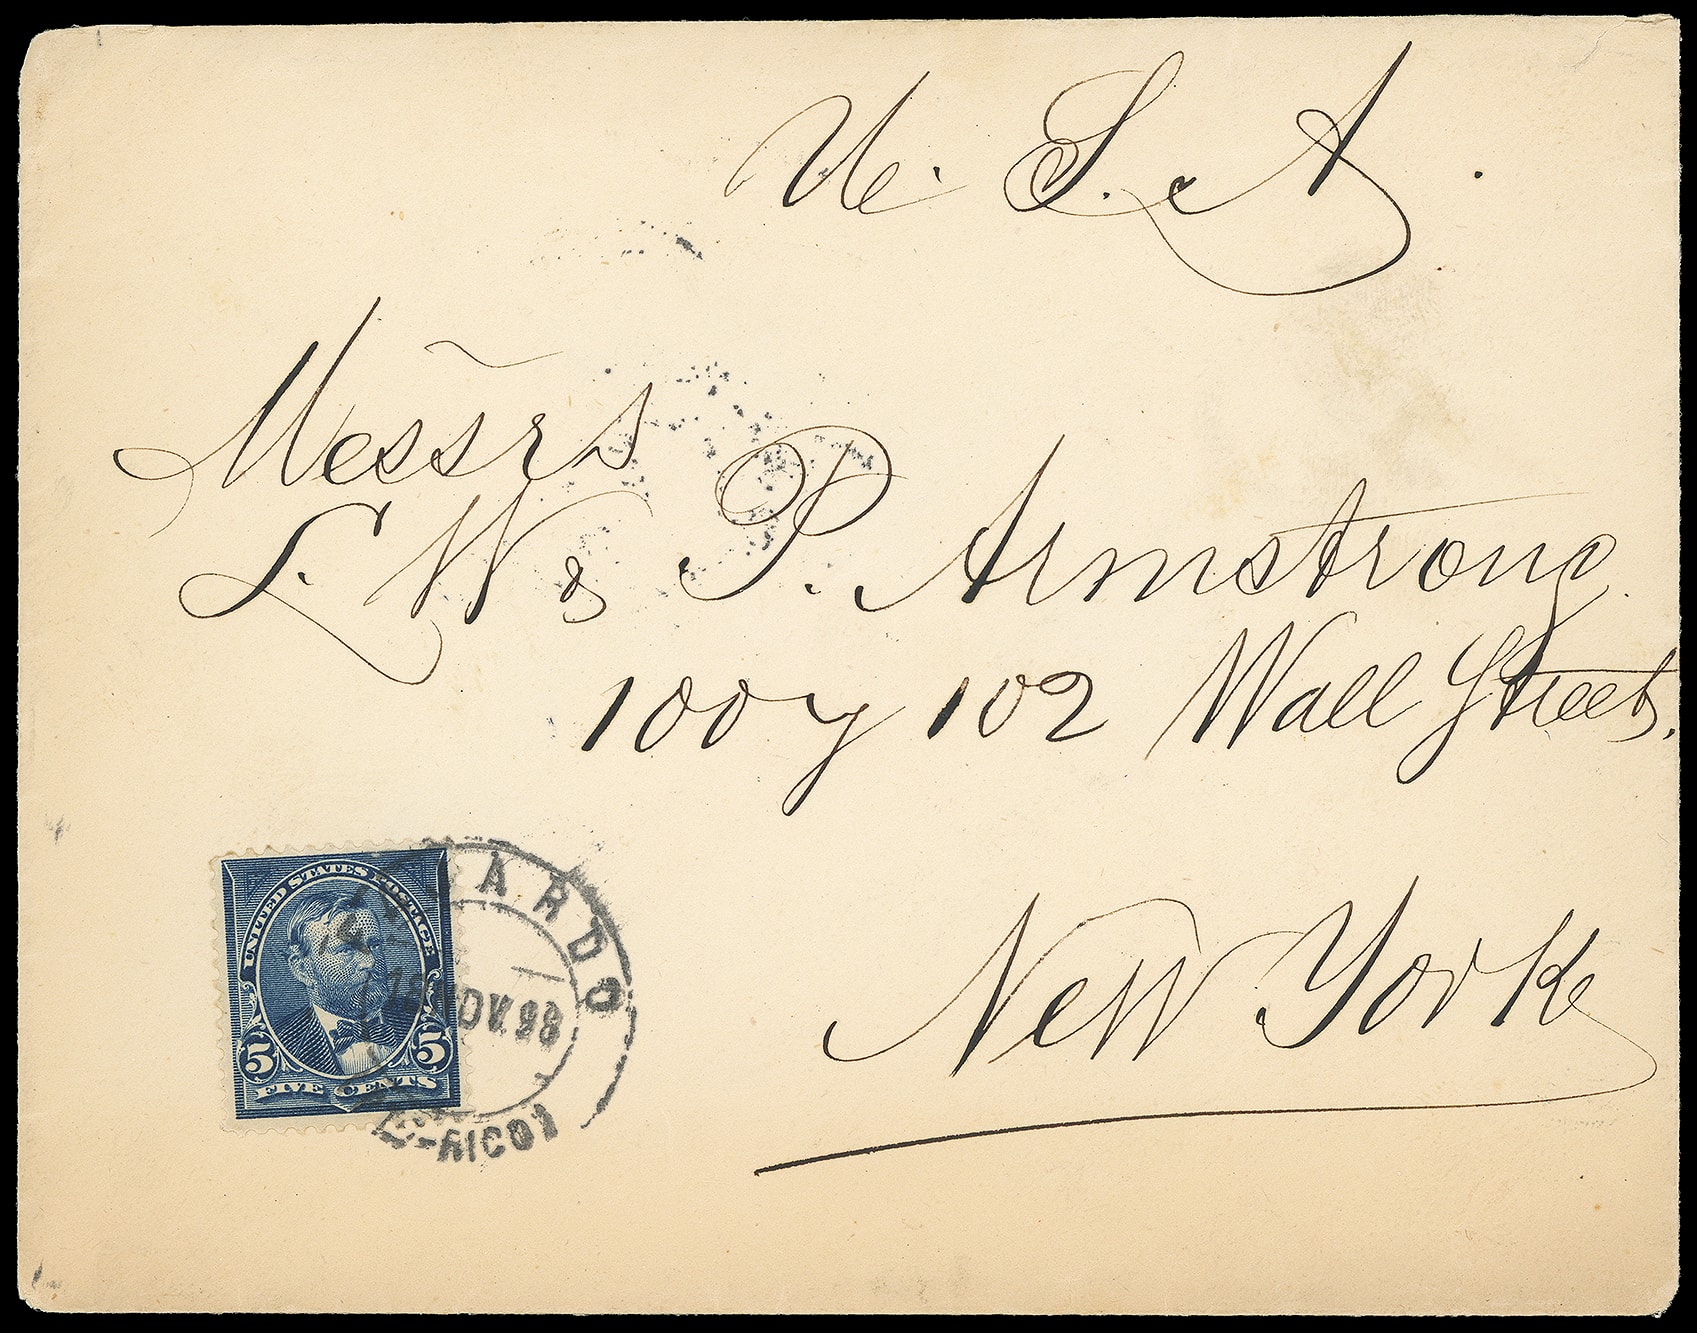 U. S. A.
Messrs
L. W & P. Armstrong.
100 y 102 Wall Street.
New York
UNITED STATES POSTAGE
5 5
FIVE CENTS
NOV. 98
-RICO